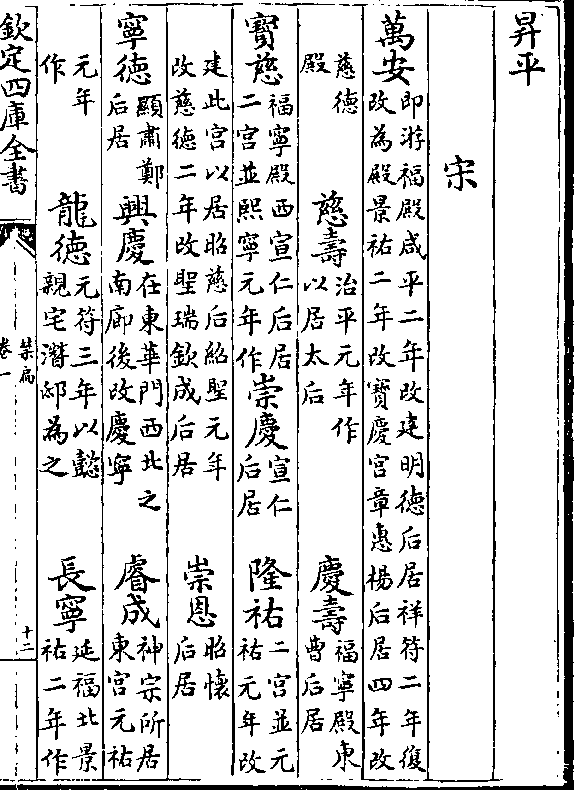 昇平
宋
萬安即游福殿咸平二年改建明德后居祥符二年復
改為殿景祐二年改寶慶宮章惠楊后居四年改
慈德
殿
慈壽治平元年作
以居太后
慶壽福寧殿東
曹后居
寶慈福寧殿西宣仁后居
二宮並熙寧元年作
崇慶宣仁
后居
隆祐二宮並元
祐元年改
建此宮以居昭慈后紹聖元年
改慈德二年改聖瑞欽成后居
崇恩昭懷
后居
寧德顯肅鄭
后居
興慶在東華門西北之
南廊後改慶寧
睿成神宗所居
東宮元祐
元年
作
龍德元符三年以懿
親宅潛邸為之
長寧延福北景
祐二年作
欽定四庫全書
禁扁
卷一
十二